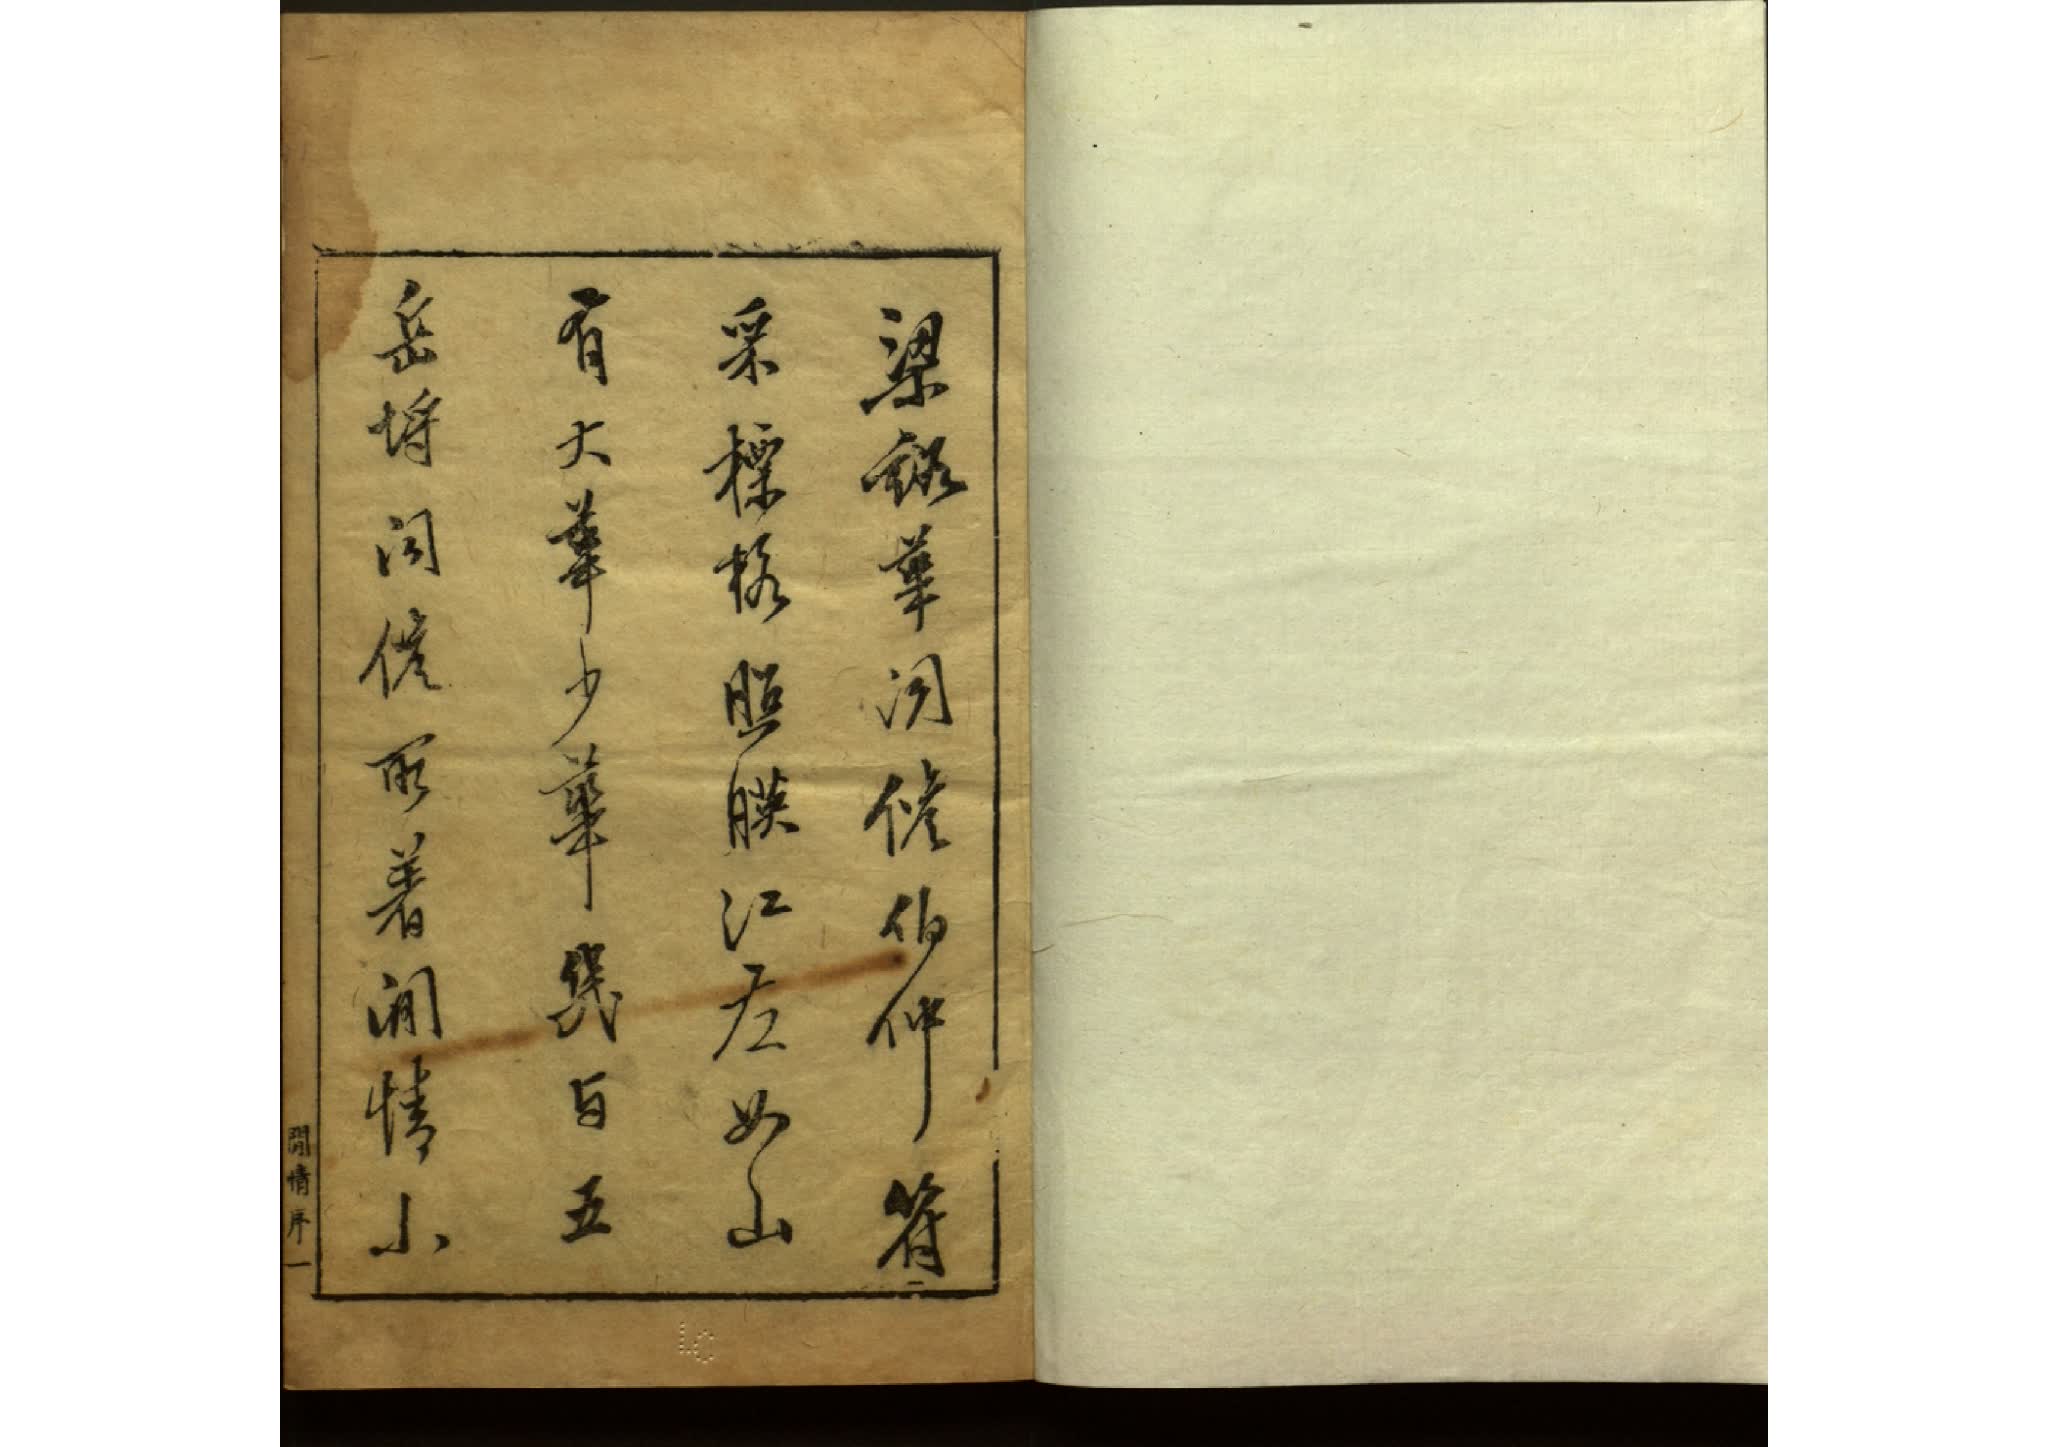 梁谿華聞修伯仲符
采標格照暎江左如山
有大華少華幾与五
岳埒聞修所著閒情小
閒情序一
LC